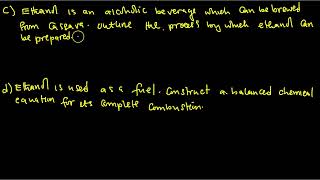 c) Ethanol is an alcoholic beverage which can be brewed
from Casava. outline the process by which ethanol can
be prepared.
d) Ethanol is used as a fuel. Construct a balanced chemical
equation for its complete combustion.